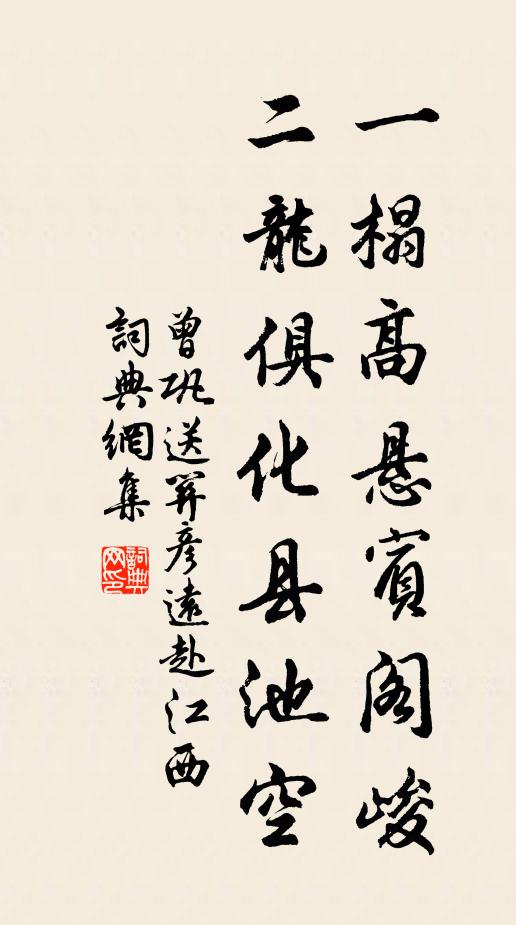 一榻高悬賓阁峻
二龍俱化县池空
曾巩送关彥遠赴江西
詞典網集
詞典网印